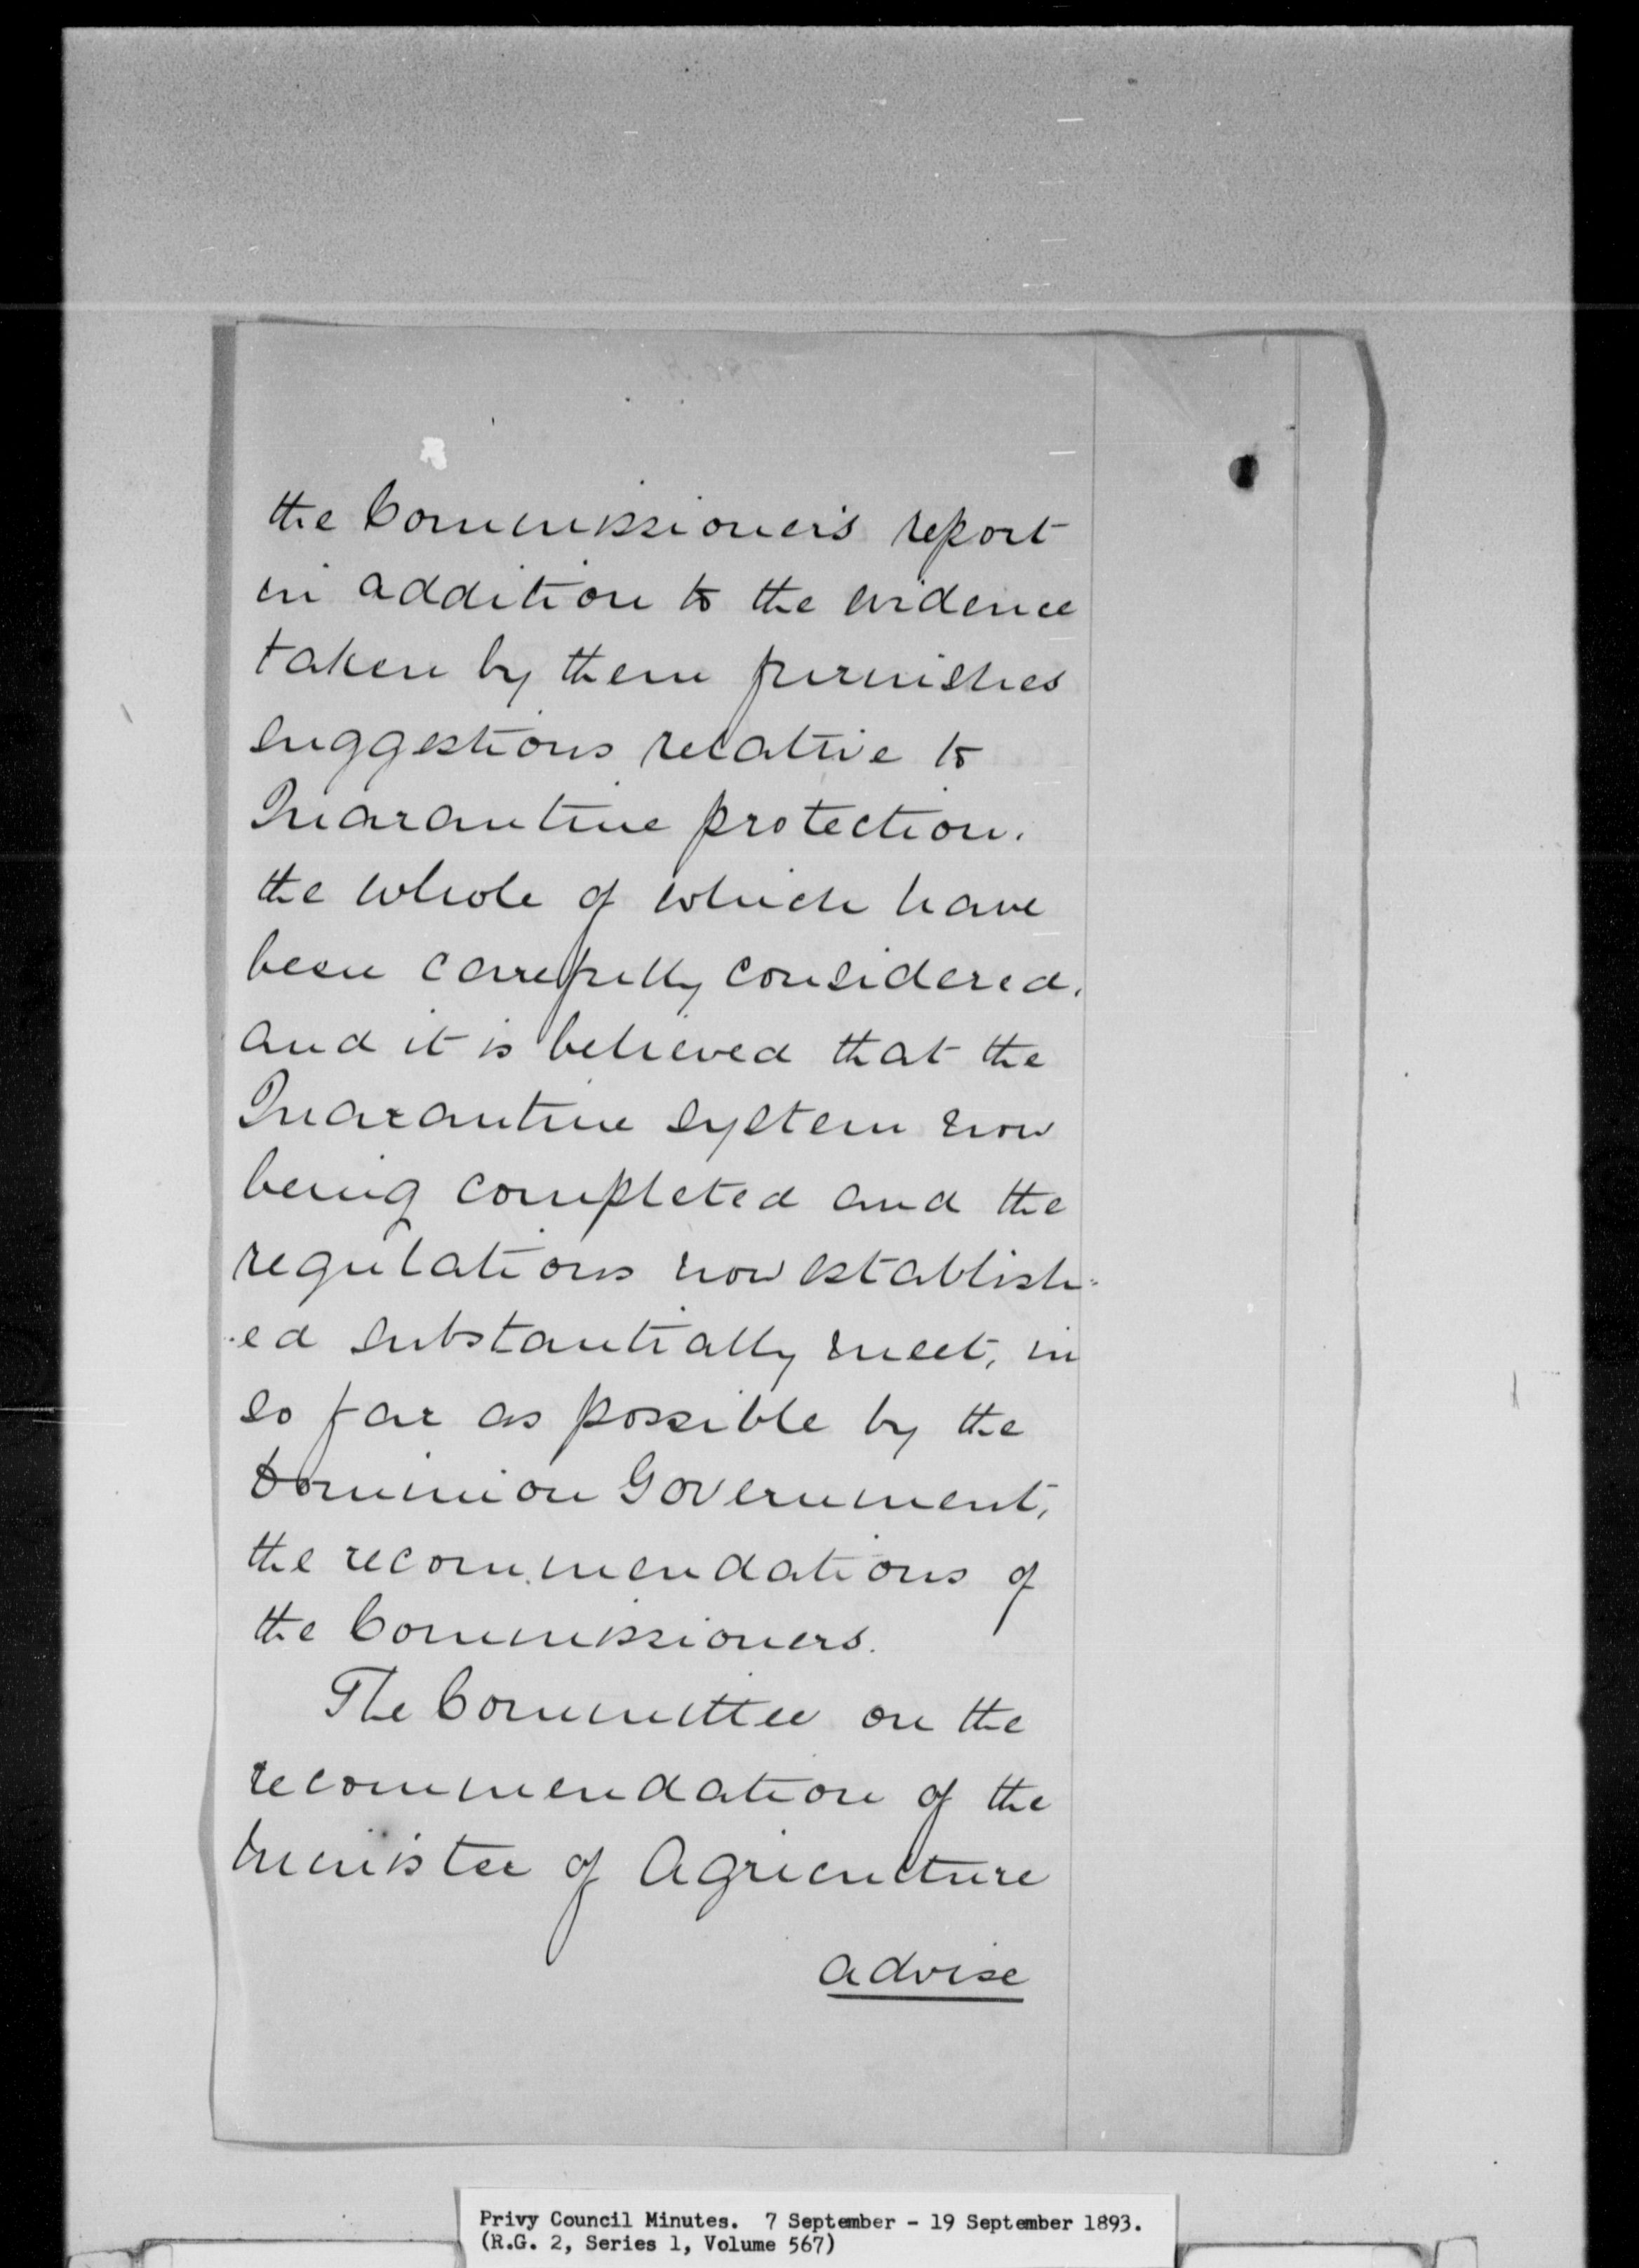 the Commissioner's report
in addition to the evidence
taken by them furnishes
suggestions relative to
Quarantine protection.
the whole of which have
been carefully considered,
and it is believed that the
Quarantine system now
being completed and the
regulations now establish-
-ed substantially meet, in
so far as possible by the
Dominion Government,
the recommendations of
the Commissioners.
The Committee on the
recommendation of the
Minister of Agriculture
advise
Privy Council Minutes. 7 September - 19 September 1893.
(R.G. 2, Series 1, Volume 567)